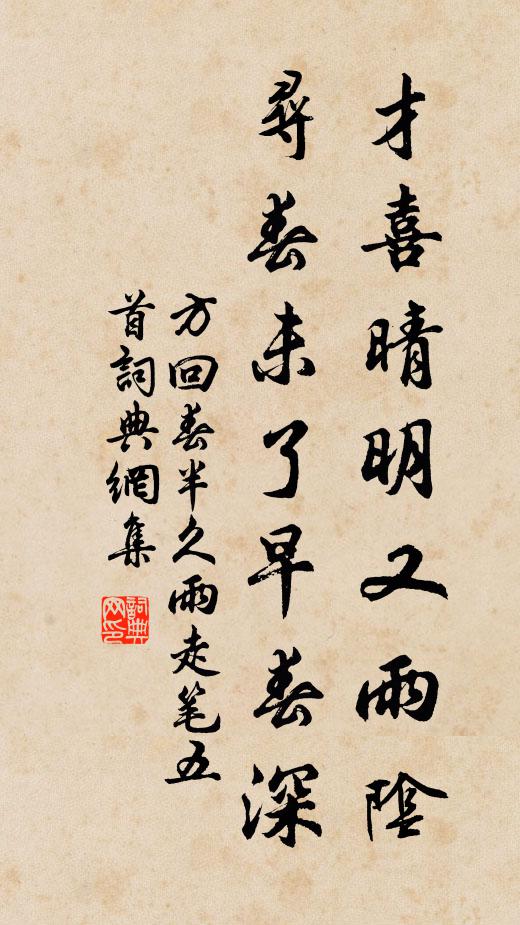 才喜晴明又雨陰
尋春未了早春深
方回春半久雨走笔五
首詞典網集
詞典網印